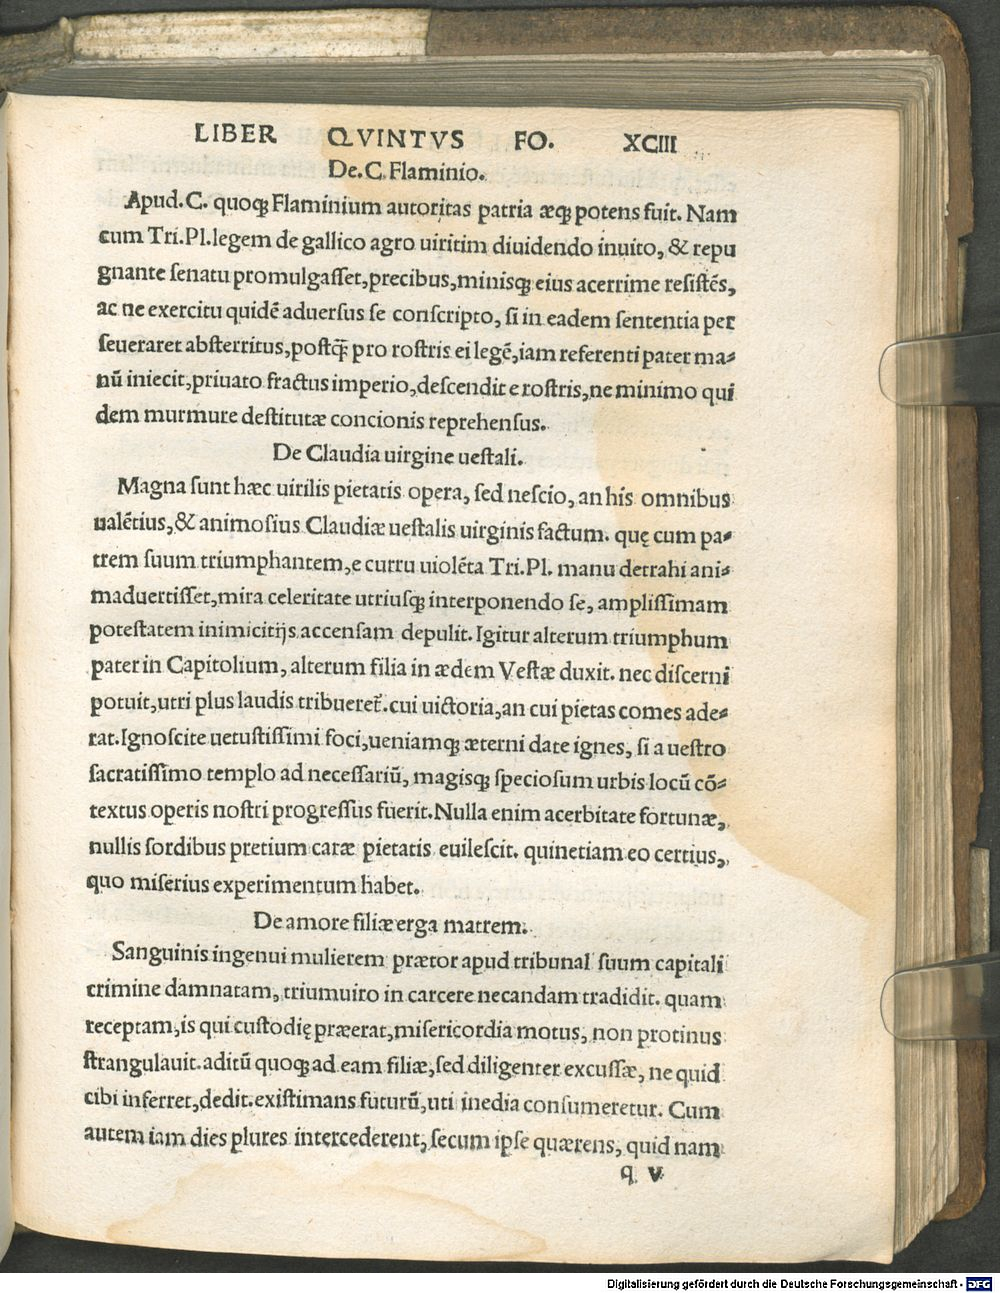 LIBER QVINTVS FO. XCIII
De.C.Flaminio.
Apud.C. quoqꝫ Flaminium autoritas patria æqꝫ potens fuit. Nam
cum Tri.Pl.legem de gallico agro uiritim diuidendo inuito, & repu
gnante ſenatu promulgaſſet,precibus,minisqꝫ eius acerrime reſiſtẽs,
ac ne exercitu quidẽ aduerſus ſe conſcripto, ſi in eadem ſententia per
ſeueraret abſterritus,poſtꝗ̃ pro roſtris ei legẽ,iam referenti pater ma⸗
nũ iniecit,priuato fractus imperio,deſcendit e roſtris,ne minimo qui
dem murmure deſtitutæ concionis reprehenſus.
De Claudia uirgine ueſtali.
Magna ſunt hæc uirilis pietatis opera, ſed neſcio, an his omnibus
ualẽtius,& animoſius Claudiæ ueſtalis uirginis factum. quę cum pa⸗
trem ſuum triumphantem,e curru uiolẽta Tri.Pl. manu detrahi ani⸗
maduertiſſet,mira celeritate utriuſqꝫ interponendo ſe, ampliſſimam
poteſtatem inimicitijs accenſam depulit. Igitur alterum triumphum
pater in Capitolium, alterum filia in ædem Veſtæ duxit. nec diſcerni
potuit,utri plus laudis tribueret̃. cui uictoria,an cui pietas comes ade⸗
rat.Ignoſcite uetuſtiſſimi foci,ueniamqꝫ æterni date ignes, ſi a ueſtro
ſacratiſſimo templo ad neceſſariũ, magisqꝫ ſpecioſum urbis locũ cõ⸗
textus operis noſtri progreſſus fuerit.Nulla enim acerbitate fortunæ,
nullis ſordibus pretium caræ pietatis euileſcit. quinetiam eo certius,
quo miſerius experimentum habet.
De amore filiæ erga matrem.
Sanguinis ingenui mulierem prætor apud tribunal ſuum capitali
crimine damnatam, triumuiro in carcere necandam tradidit. quam
receptam,is qui cuſtodię præerat,miſericordia motus, non protinus
ſtrangulauit.aditũ quoqꝫ ad eam filiæ,ſed diligenter excuſſæ, ne quid
cibi inferret,dedit.exiſtimans futurũ,uti inedia conſumeretur. Cum
autem iam dies plures intercederent, ſecum ipſe quærens, quid nam
q v
Digitalisierung gefördert durch die Deutsche Forschungsgemeinschaft - DFG